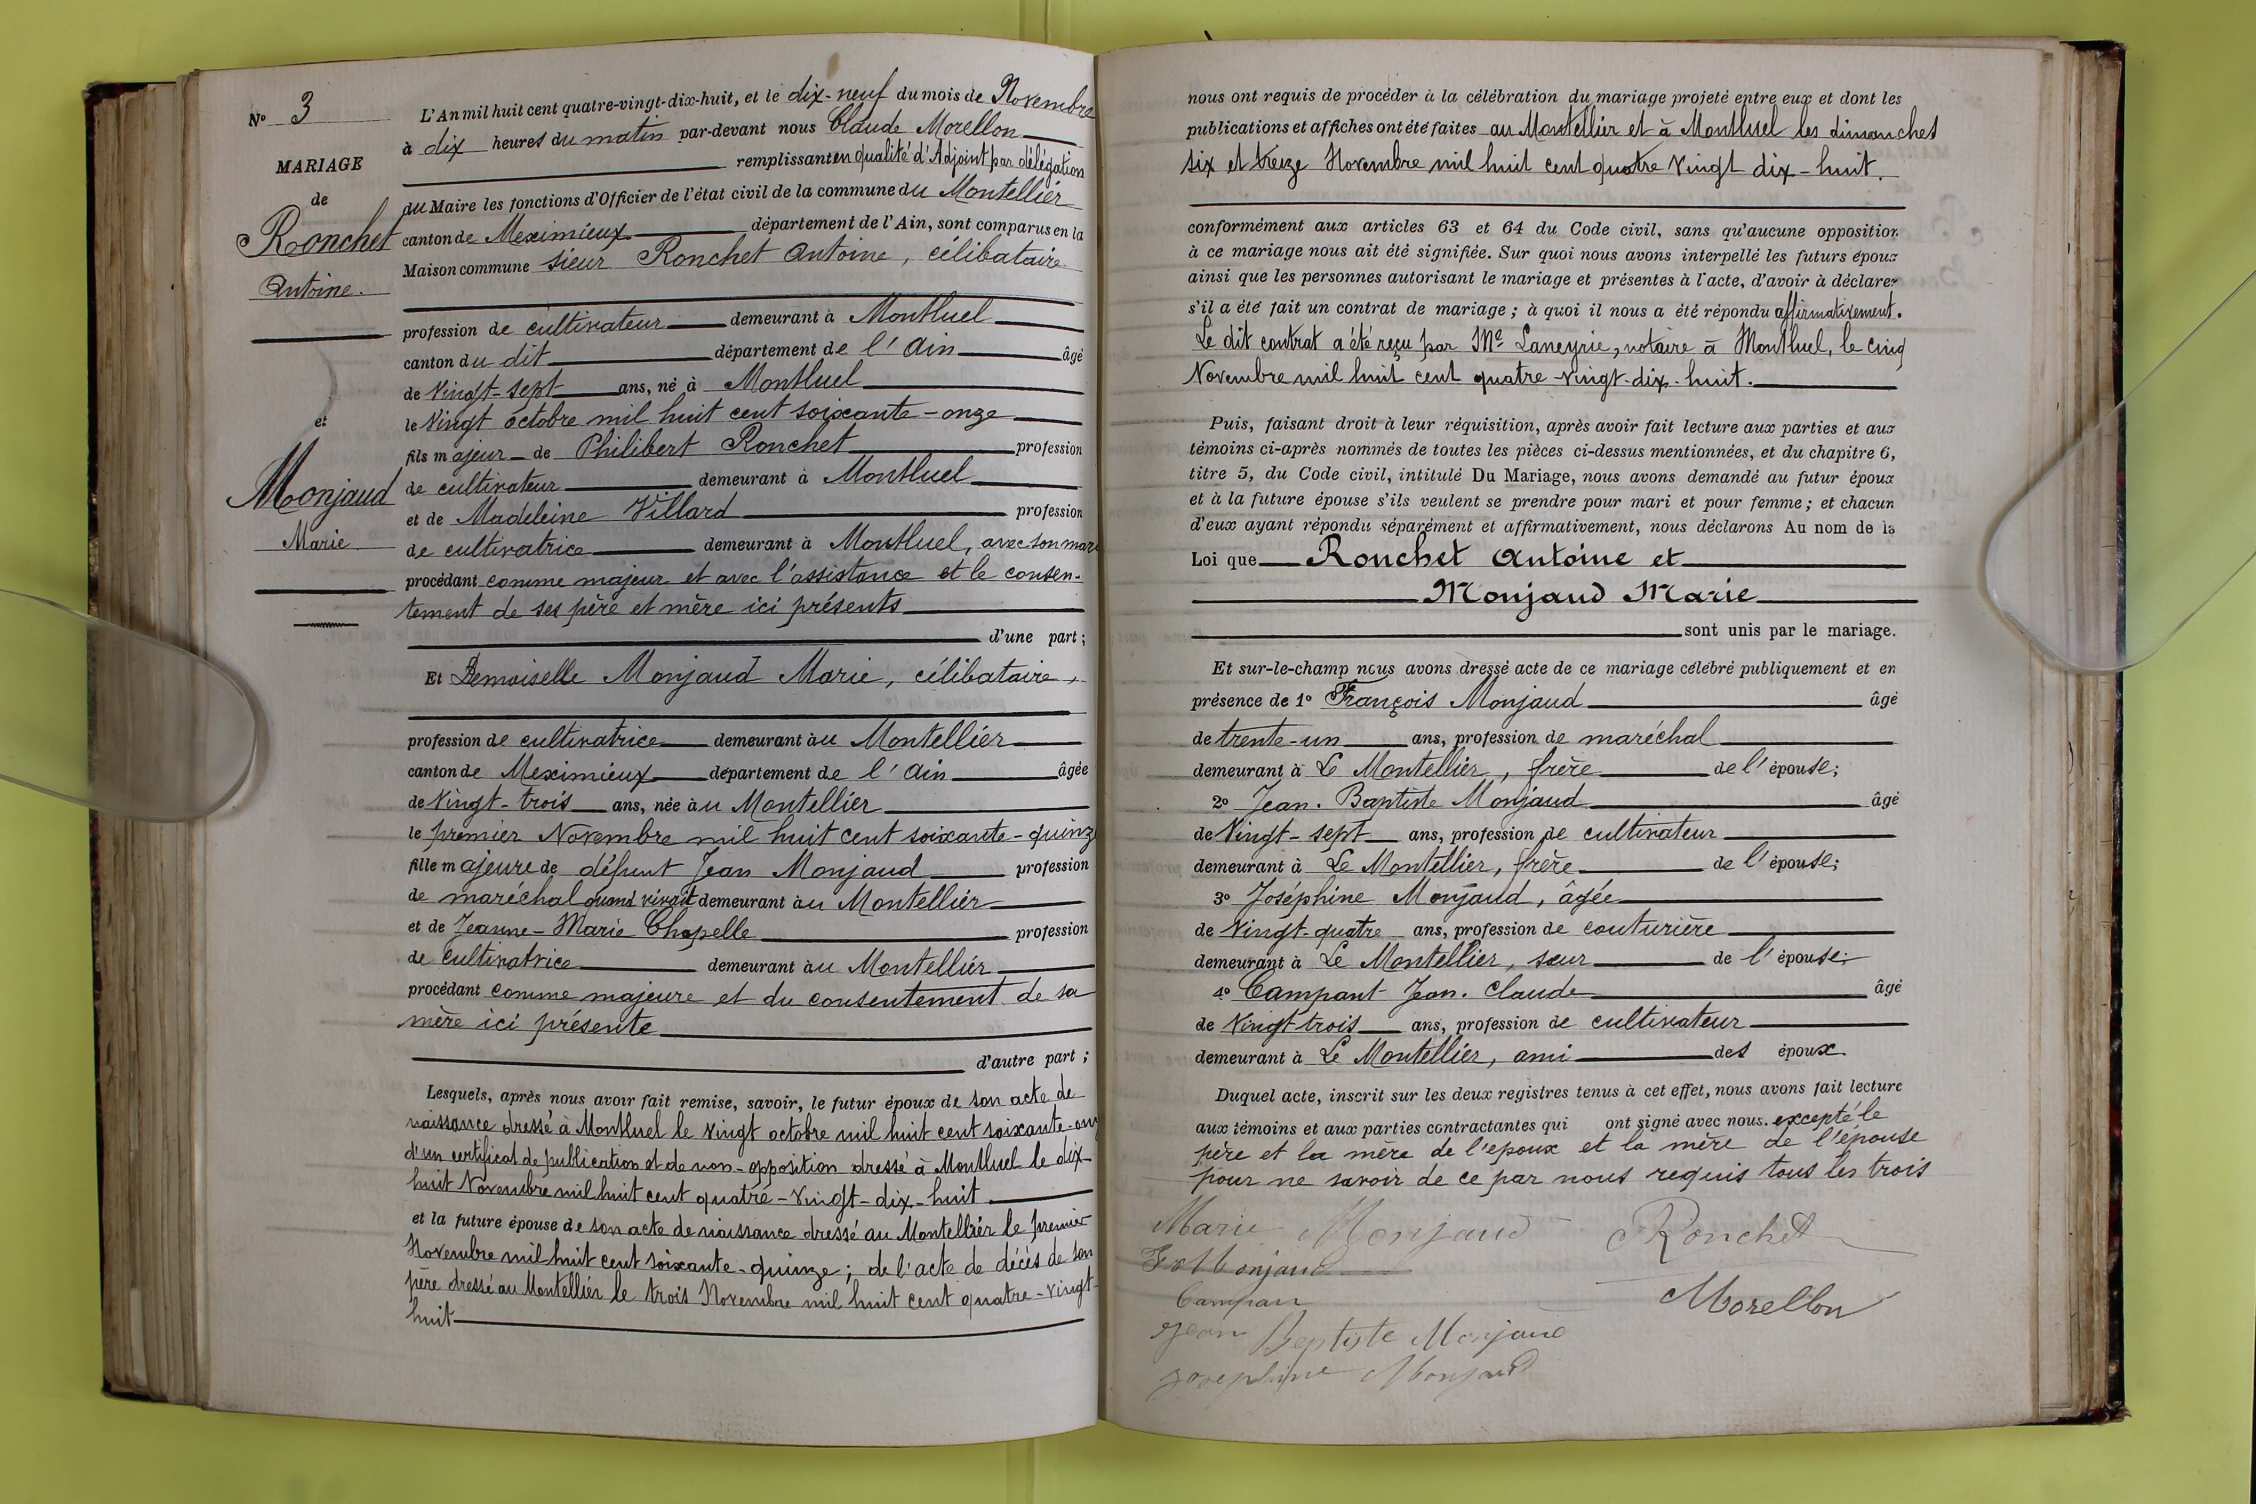 N° 3
MARIAGE
de
Ronchet
Antoine.
et
Monjaud
Marie
L'An mil huit cent quatre-vingt-dix-huit, et le dix-neuf du mois de Novembre
à dix heures du matin par-devant nous Claude Morellon
remplissant en qualité d'Adjoint par délégation
du Maire les fonctions d'Officier de l'état civil de la commune du Montellier
canton de Meximieux département de l'Ain, sont comparus en la
Maison commune sieur Ronchet Antoine, célibataire
profession de cultivateur demeurant à Montluel
canton du dit département de l'Ain âgé
de Vingt-sept ans, né à Montluel
le Vingt octobre mil huit cent soixante-onze
fils majeur de Philibert Ronchet profession
de cultivateur demeurant à Montluel
et de Madeleine Villard profession
de cultivatrice demeurant à Montluel, avec son mari
procédant comme majeur et avec l'assistance et le consen-
tement de ses père et mère ici présents
d'une part ;
Et Demoiselle Monjaud Marie, célibataire,
profession de cultivatrice demeurant àu Montellier
canton de Meximieux département de l'Ain âgée
de Vingt-trois ans, née àu Montellier
le premier Novembre mil huit cent soixante-quinze
fille majeure de défunt Jean Monjaud profession
de maréchal quand vivait demeurant àu Montellier
et de Jeanne-Marie Chapelle profession
de cultivatrice demeurant àu Montellier
procédant comme majeure et du consentement de sa
mère ici présente
d'autre part ;
Lesquels, après nous avoir fait remise, savoir, le futur époux de son acte de
naissance dressé à Montluel le vingt octobre mil huit cent soixante-onze
d'un certificat de publication et de non-opposition dressé à Montluel le dix
huit Novembre mil huit cent quatre-Vingt-dix-huit.
et la future épouse de son acte de naissance dressé au Montellier le premier
Novembre mil huit cent soixante-quinze ; de l'acte de décès de son
père dressé au Montellier le trois Novembre mil huit cent quatre-vingt-
huit
nous ont requis de procéder à la célébration du mariage projeté entre eux et dont les
publications et affiches ont été faites au Montellier et à Montluel les dimanches
six et treize Novembre mil huit cent quatre Vingt dix-huit.
conformément aux articles 63 et 64 du Code civil, sans qu'aucune opposition
à ce mariage nous ait été signifiée. Sur quoi nous avons interpellé les futurs époux
ainsi que les personnes autorisant le mariage et présentes à l'acte, d'avoir à déclarer
s'il a été fait un contrat de mariage ; à quoi il nous a été répondu affirmativement.
Le dit contrat a été reçu par Me Laneyrie, notaire à Montluel, le cinq
Novembre mil huit cent quatre-vingt-dix-huit.
Puis, faisant droit à leur réquisition, après avoir fait lecture aux parties et aux
témoins ci-après nommés de toutes les pièces ci-dessus mentionnées, et du chapitre 6,
titre 5, du Code civil, intitulé Du Mariage, nous avons demandé au futur époux
et à la future épouse s'ils veulent se prendre pour mari et pour femme ; et chacun
d'eux ayant répondu séparément et affirmativement, nous déclarons Au nom de la
Loi que Ronchet Antoine et
Monjaud Marie
sont unis par le mariage.
Et sur-le-champ nous avons dressé acte de ce mariage célébré publiquement et en
présence de 1° François Monjaud âgé
de trente-un ans, profession de maréchal
demeurant à Le Montellier, frère de l'épouse;
2° Jean-Baptiste Monjaud âgé
de Vingt-sept ans, profession de cultivateur
demeurant à Le Montellier, frère de l'épouse;
3° Joséphine Monjaud, âgée
de Vingt-quatre ans, profession de couturière
demeurant à Le Montellier, sœur de l'épouse;
4° Campant Jean-Claude âgé
de Vingt-trois ans, profession de cultivateur
demeurant à Le Montellier, ami des époux.
Duquel acte, inscrit sur les deux registres tenus à cet effet, nous avons fait lecture
aux témoins et aux parties contractantes qui ont signé avec nous. excepté le
père et la mère de l'époux et la mère de l'épouse
pour ne savoir de ce par nous requis tous les trois
Marie Monjaud Ronchet
Fs Monjaud
Campan Morellon
Jean Baptiste Monjaud
Josephine Monjaud